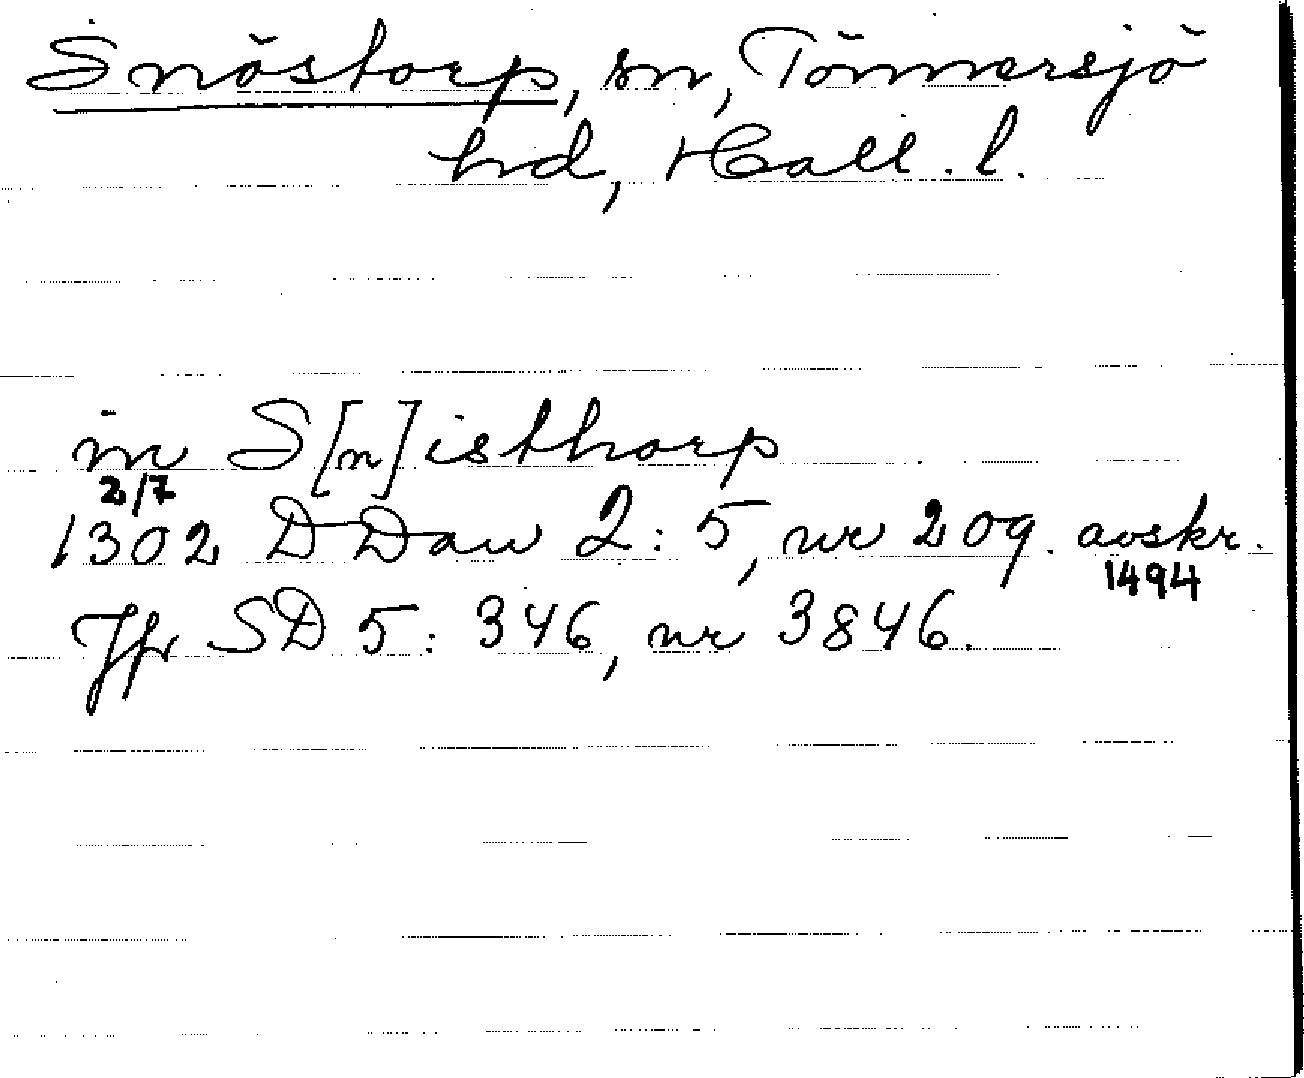 Snöstorp, sn, Tönnersjö
hd, Hall. l.
in S[n]isthorp
2/7
1302 DDan 2: 5, nr 209. avskr.
1494
Jfr SD 5: 346, nr 3846.